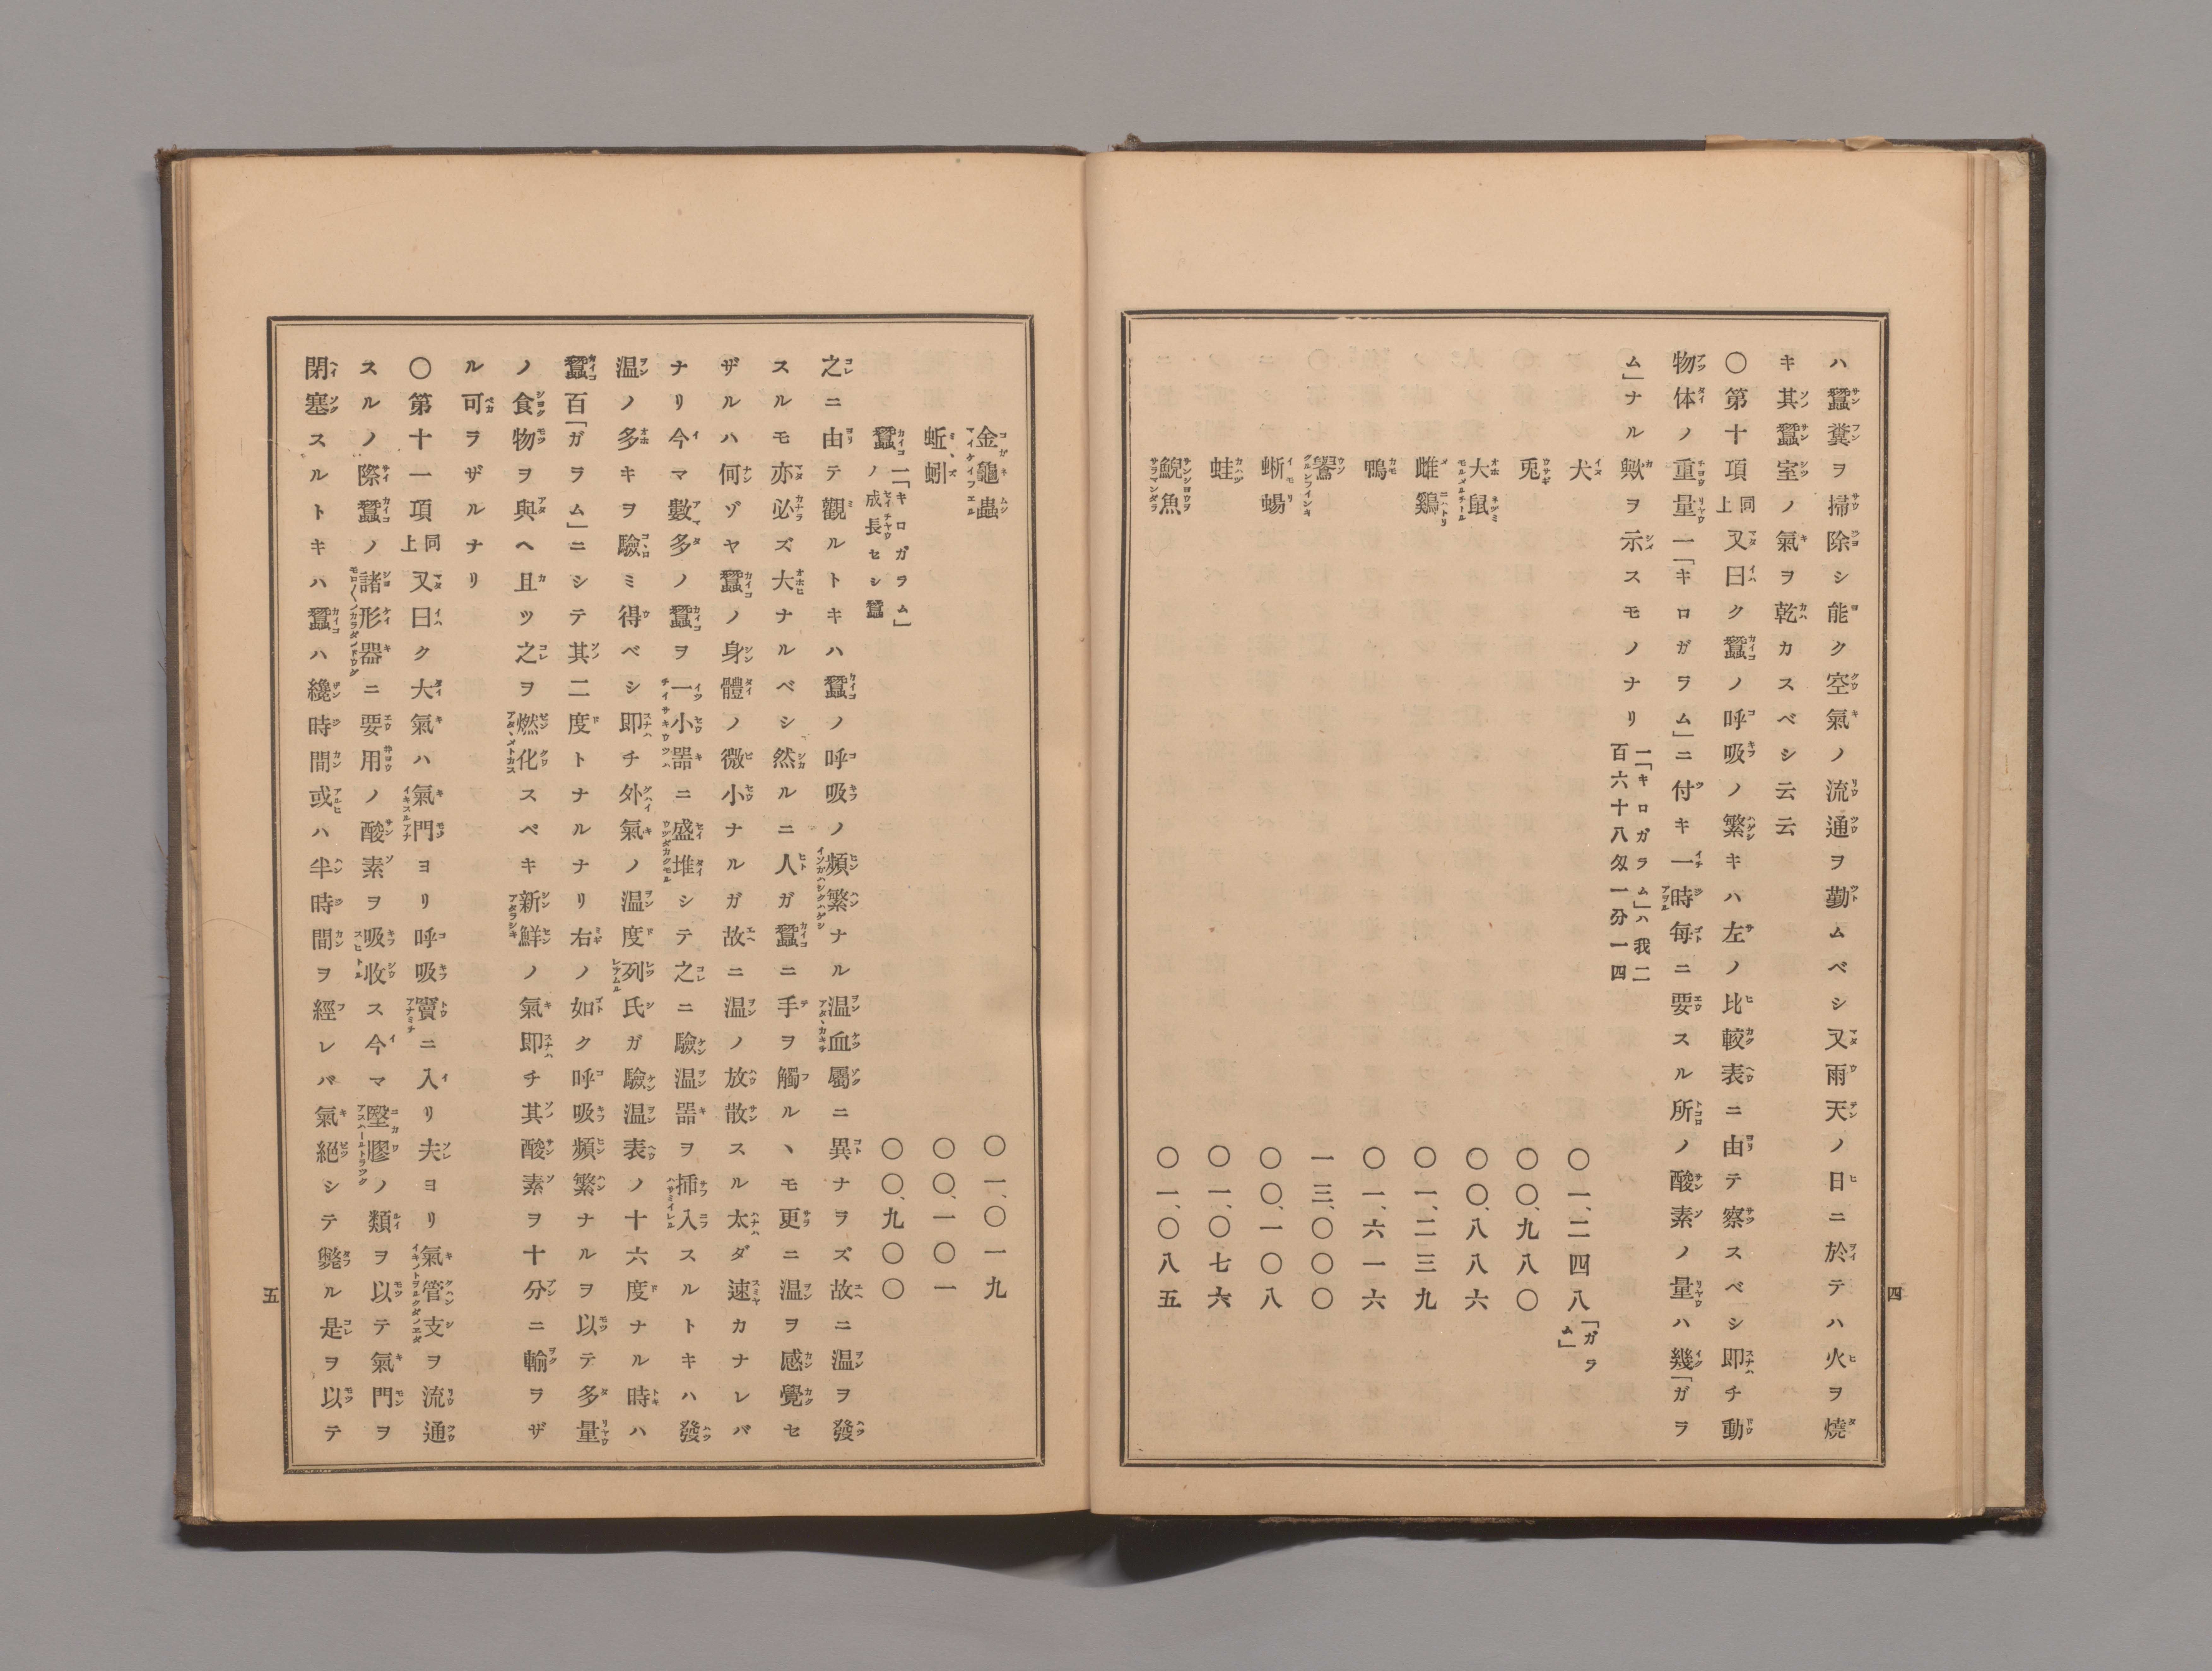 ハ蠶糞ヲ掃除シ能ク空氣ノ流通ヲ勤ムベシ又雨天ノ日ニ於テハ火ヲ燒
キ其蠶室ノ氣ヲ乾カスベシ云云
〇第十項同上又曰ク蠶ノ呼吸ノ繁キハ左ノ比較表ニ由テ察スベシ即チ動
物体ノ重量一「キロガラム」ニ付キ一時毎ニ要スル所ノ酸素ノ量ハ幾「ガラ
ム」ナル歟ヲ示スモノナリ一「キロガラム」ハ我二百六十八匁一分一四
犬 〇一、二四八「ガラム」
兎 〇〇、九八〇
大鼠 〇〇、八八六
雌鷄 〇一、二三九
鴨 〇一、六一六
鷽 一三、〇〇〇
蜥蜴 〇〇、一〇八
蛙 〇一、〇七六
鯢魚 〇一、〇八五
四
金龜蟲 〇一、〇一九
蚯蚓 〇〇、一〇一
蠶一「キロガラム」ノ成長セシ蠶 〇〇、九〇〇
之ニ由テ觀ルトキハ蠶ノ呼吸ノ頻繁ナル温血屬ニ異ナラズ故ニ温ヲ發
スルモ亦必ズ大ナルベシ然ルニ人ガ蠶ニ手ヲ觸ルヽモ更ニ温ヲ感覺セ
ザルハ何ゾヤ蠶ノ身體ノ微小ナルガ故ニ温ノ放散スル太ダ速カナレバ
ナリ今マ數多ノ蠶ヲ一小器ニ盛堆シテ之ニ驗温器ヲ挿入スルトキハ發
温ノ多キヲ驗ミ得ベシ即チ外氣ノ温度列氏ガ驗温表ノ十六度ナル時ハ
蠶百「ガラム」ニシテ其二度トナルナリ右ノ如ク呼吸頻繁ナルヲ以テ多量
ノ食物ヲ與ヘ且ツ之ヲ燃化スベキ新鮮ノ氣即チ其酸素ヲ十分ニ輸ラザ
ル可ラザルナリ
〇第十一項同上又曰ク大氣ハ氣門ヨリ呼吸竇ニ入リ夫ヨリ氣管支ヲ流通
スルノ際蠶ノ諸形器ニ要用ノ酸素ヲ吸收ス今マ墍膠ノ類ヲ以テ氣門ヲ
閉塞スルトキハ蠶ハ纔時間或ハ半時間ヲ經レバ氣絕シテ斃ル是ヲ以テ
五